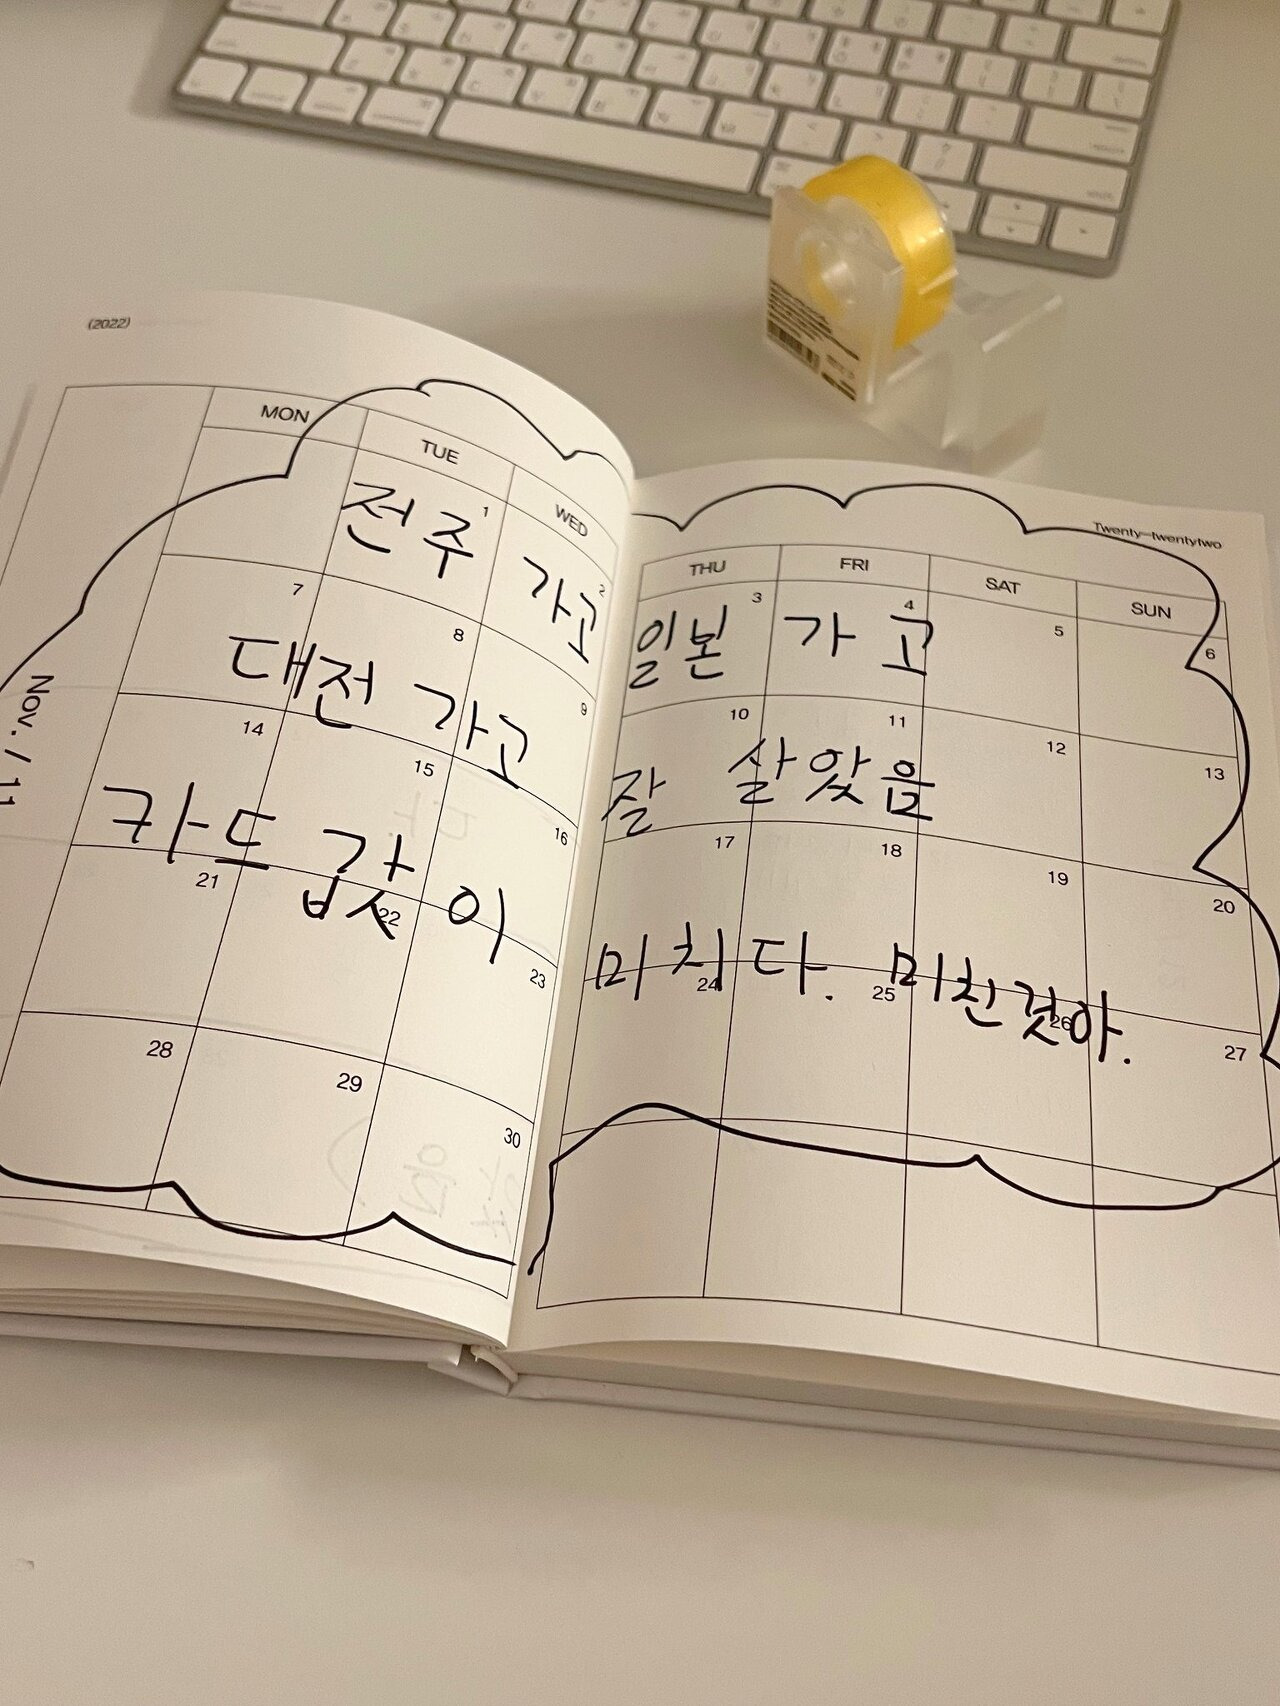 (2022)
Twenty-twentytwo
Nov. / 11
MON TUE WED THU FRI SAT SUN
1 2 3 4 5 6
전주 가고 일본 가고
7 8 9 10 11 12 13
대전 가고 잘 살았음
14 15 16 17 18 19 20
카드 값이 미칬다. 미친것아.
21 22 23 24 25 26 27
28 29 30